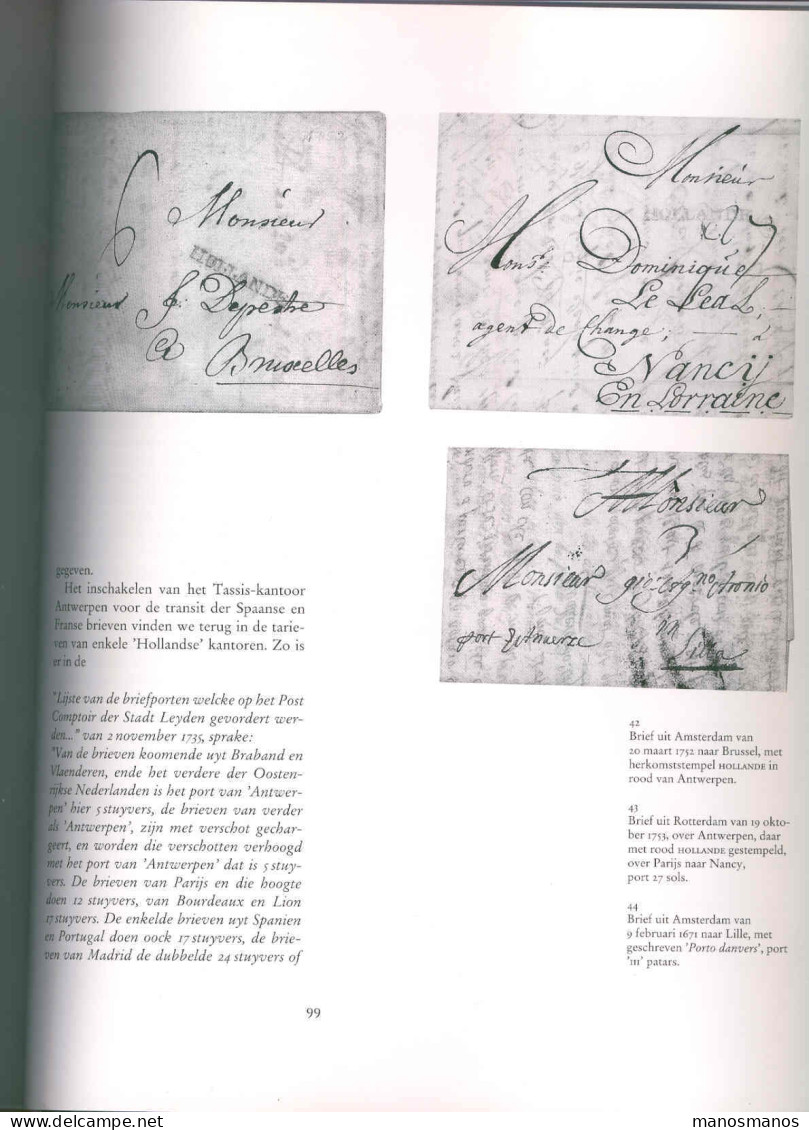 6
Monsieur
HOLLANDE
Monsieur J: Depestre
a Bruxelles
Monsieur
HOLLANDE
27
Monsr. Dominique
Le Leal,
agent de Change; — à
Nancÿ
En Lorraine
Monsieur
3
Monsieur
port
in
Lilla
gegeven.
Het inschakelen van het Tassis-kantoor
Antwerpen voor de transit der Spaanse en
Franse brieven vinden we terug in de tarie-
ven van enkele 'Hollandse' kantoren. Zo is
er in de
"Lijste van de briefporten welcke op het Post
Comptoir der Stadt Leyden gevordert wer-
den..." van 2 november 1735, sprake:
"Van de brieven koomende uyt Braband en
Vlaenderen, ende het verdere der Oosten-
rijkse Nederlanden is het port van 'Antwer-
pen' hier 5 stuyvers, de brieven van verder
als 'Antwerpen', zijn met verschot gechar-
geert, en worden die verschotten verhoogd
met het port van 'Antwerpen' dat is 5 stuy-
vers. De brieven van Parijs en die hoogte
doen 12 stuyvers, van Bourdeaux en Lion
17 stuyvers. De enkelde brieven uyt Spanien
en Portugal doen oock 17 stuyvers, de brie-
ven van Madrid de dubbelde 24 stuyvers of
42
Brief uit Amsterdam van
20 maart 1752 naar Brussel, met
herkomststempel HOLLANDE in
rood van Antwerpen.
43
Brief uit Rotterdam van 19 okto-
ber 1753, over Antwerpen, daar
met rood HOLLANDE gestempeld,
over Parijs naar Nancy,
port 27 sols.
44
Brief uit Amsterdam van
9 februari 1671 naar Lille, met
geschreven 'Porto danvers', port
'III' patars.
99
manosmanos